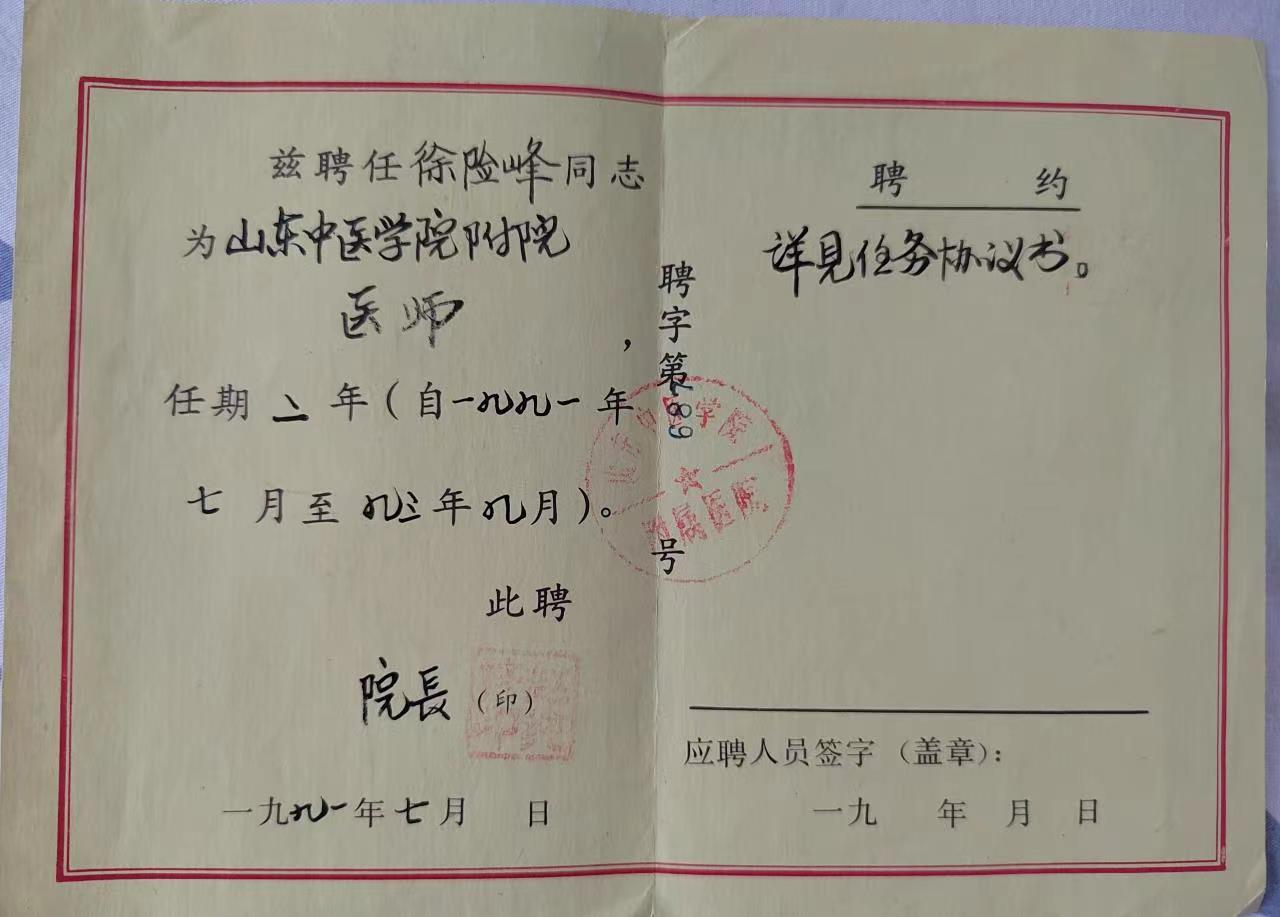 兹聘任徐险峰同志
为山东中医学院附院
医师，
任期二年（自一九九一年
七月至九三年九月）。
此聘
院長（印）
一九九一年七月 日
聘字第289号
中医学院
附属医院
聘 约
详见任务协议书。
应聘人员签字（盖章）：
一九 年 月 日